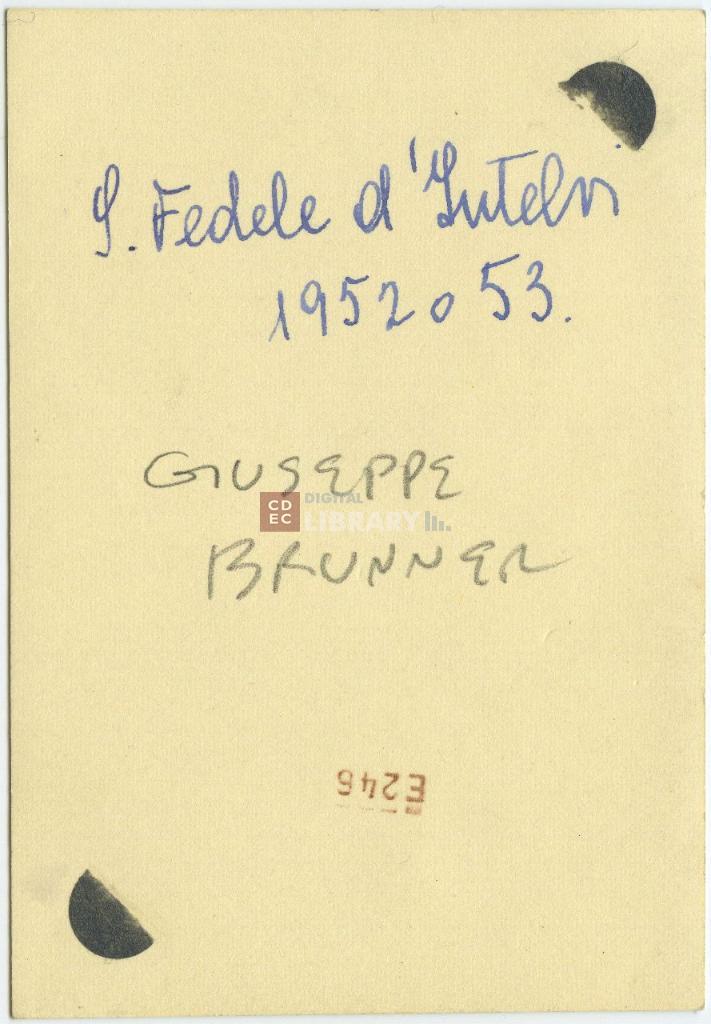 S. Fedele d'Intelvi
1952 o 53.
GIUSEPPE
BRUNNER
CDEC DIGITAL LIBRARY
E246